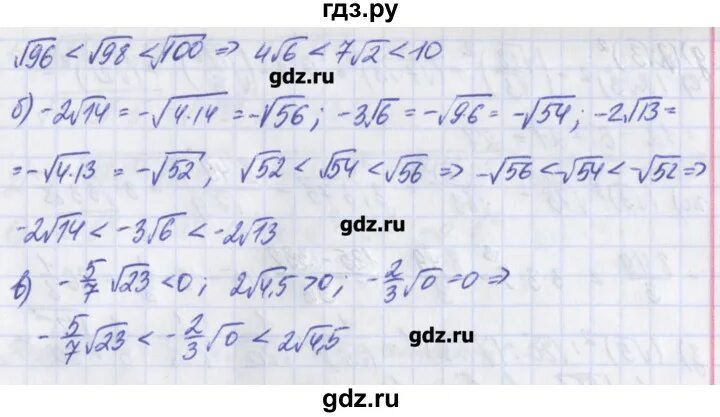 гдз.ру
√96 < √98 < √100 => 4√6 < 7√2 < 10
gdz.ru
б) -2√14 = -√4·14 = -√56; -3√6 = -√96 = -√54; -2√13 =
= -√4·13 = -√52; √52 < √54 < √56 => -√56 < -√54 < -√52 =>
gdz.ru
-2√14 < -3√6 < -2√13
в) -5/7 √23 < 0; 2√4,5 > 0; -2/3 √0 = 0 =>
-5/7 √23 < -2/3 √0 < 2√4,5
gdz.ru
gdz.ru